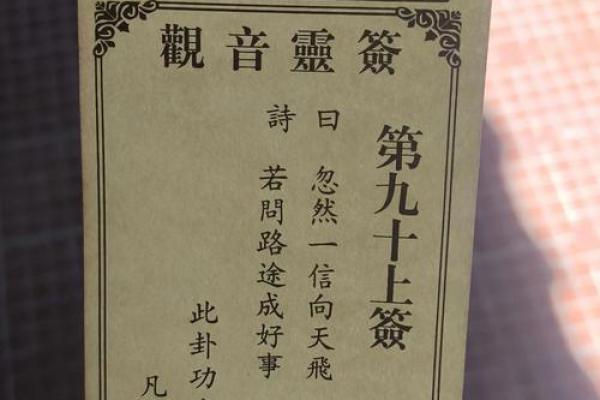 觀音靈簽
第九十上簽
曰 忽然一信向天飛
詩 若問路途成好事
此卦功
凡